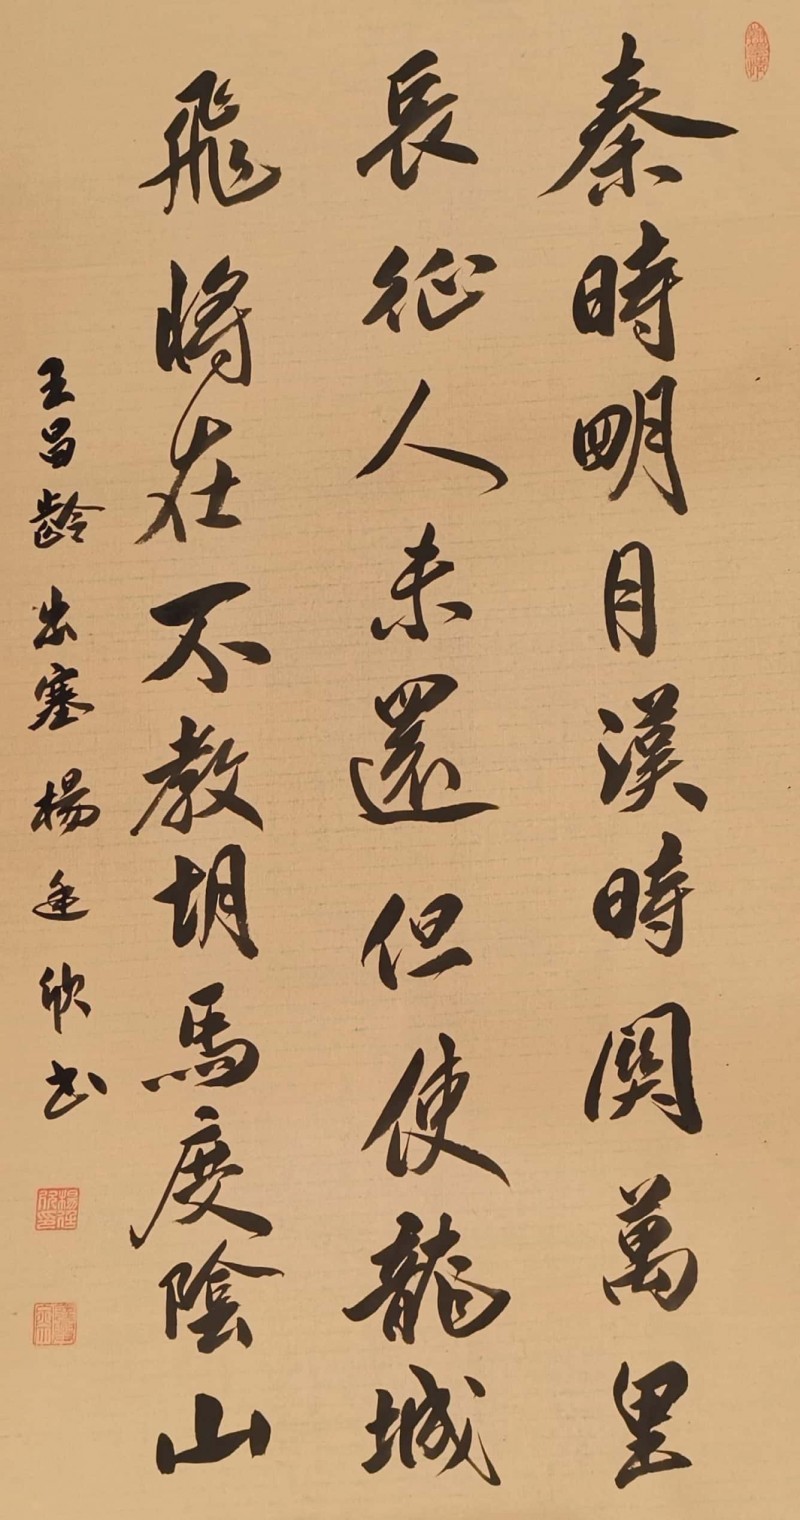 秦時明月漢時関萬里
長征人未還但使龍城
飛將在不教胡馬度陰山
王昌龄出塞楊延欣书